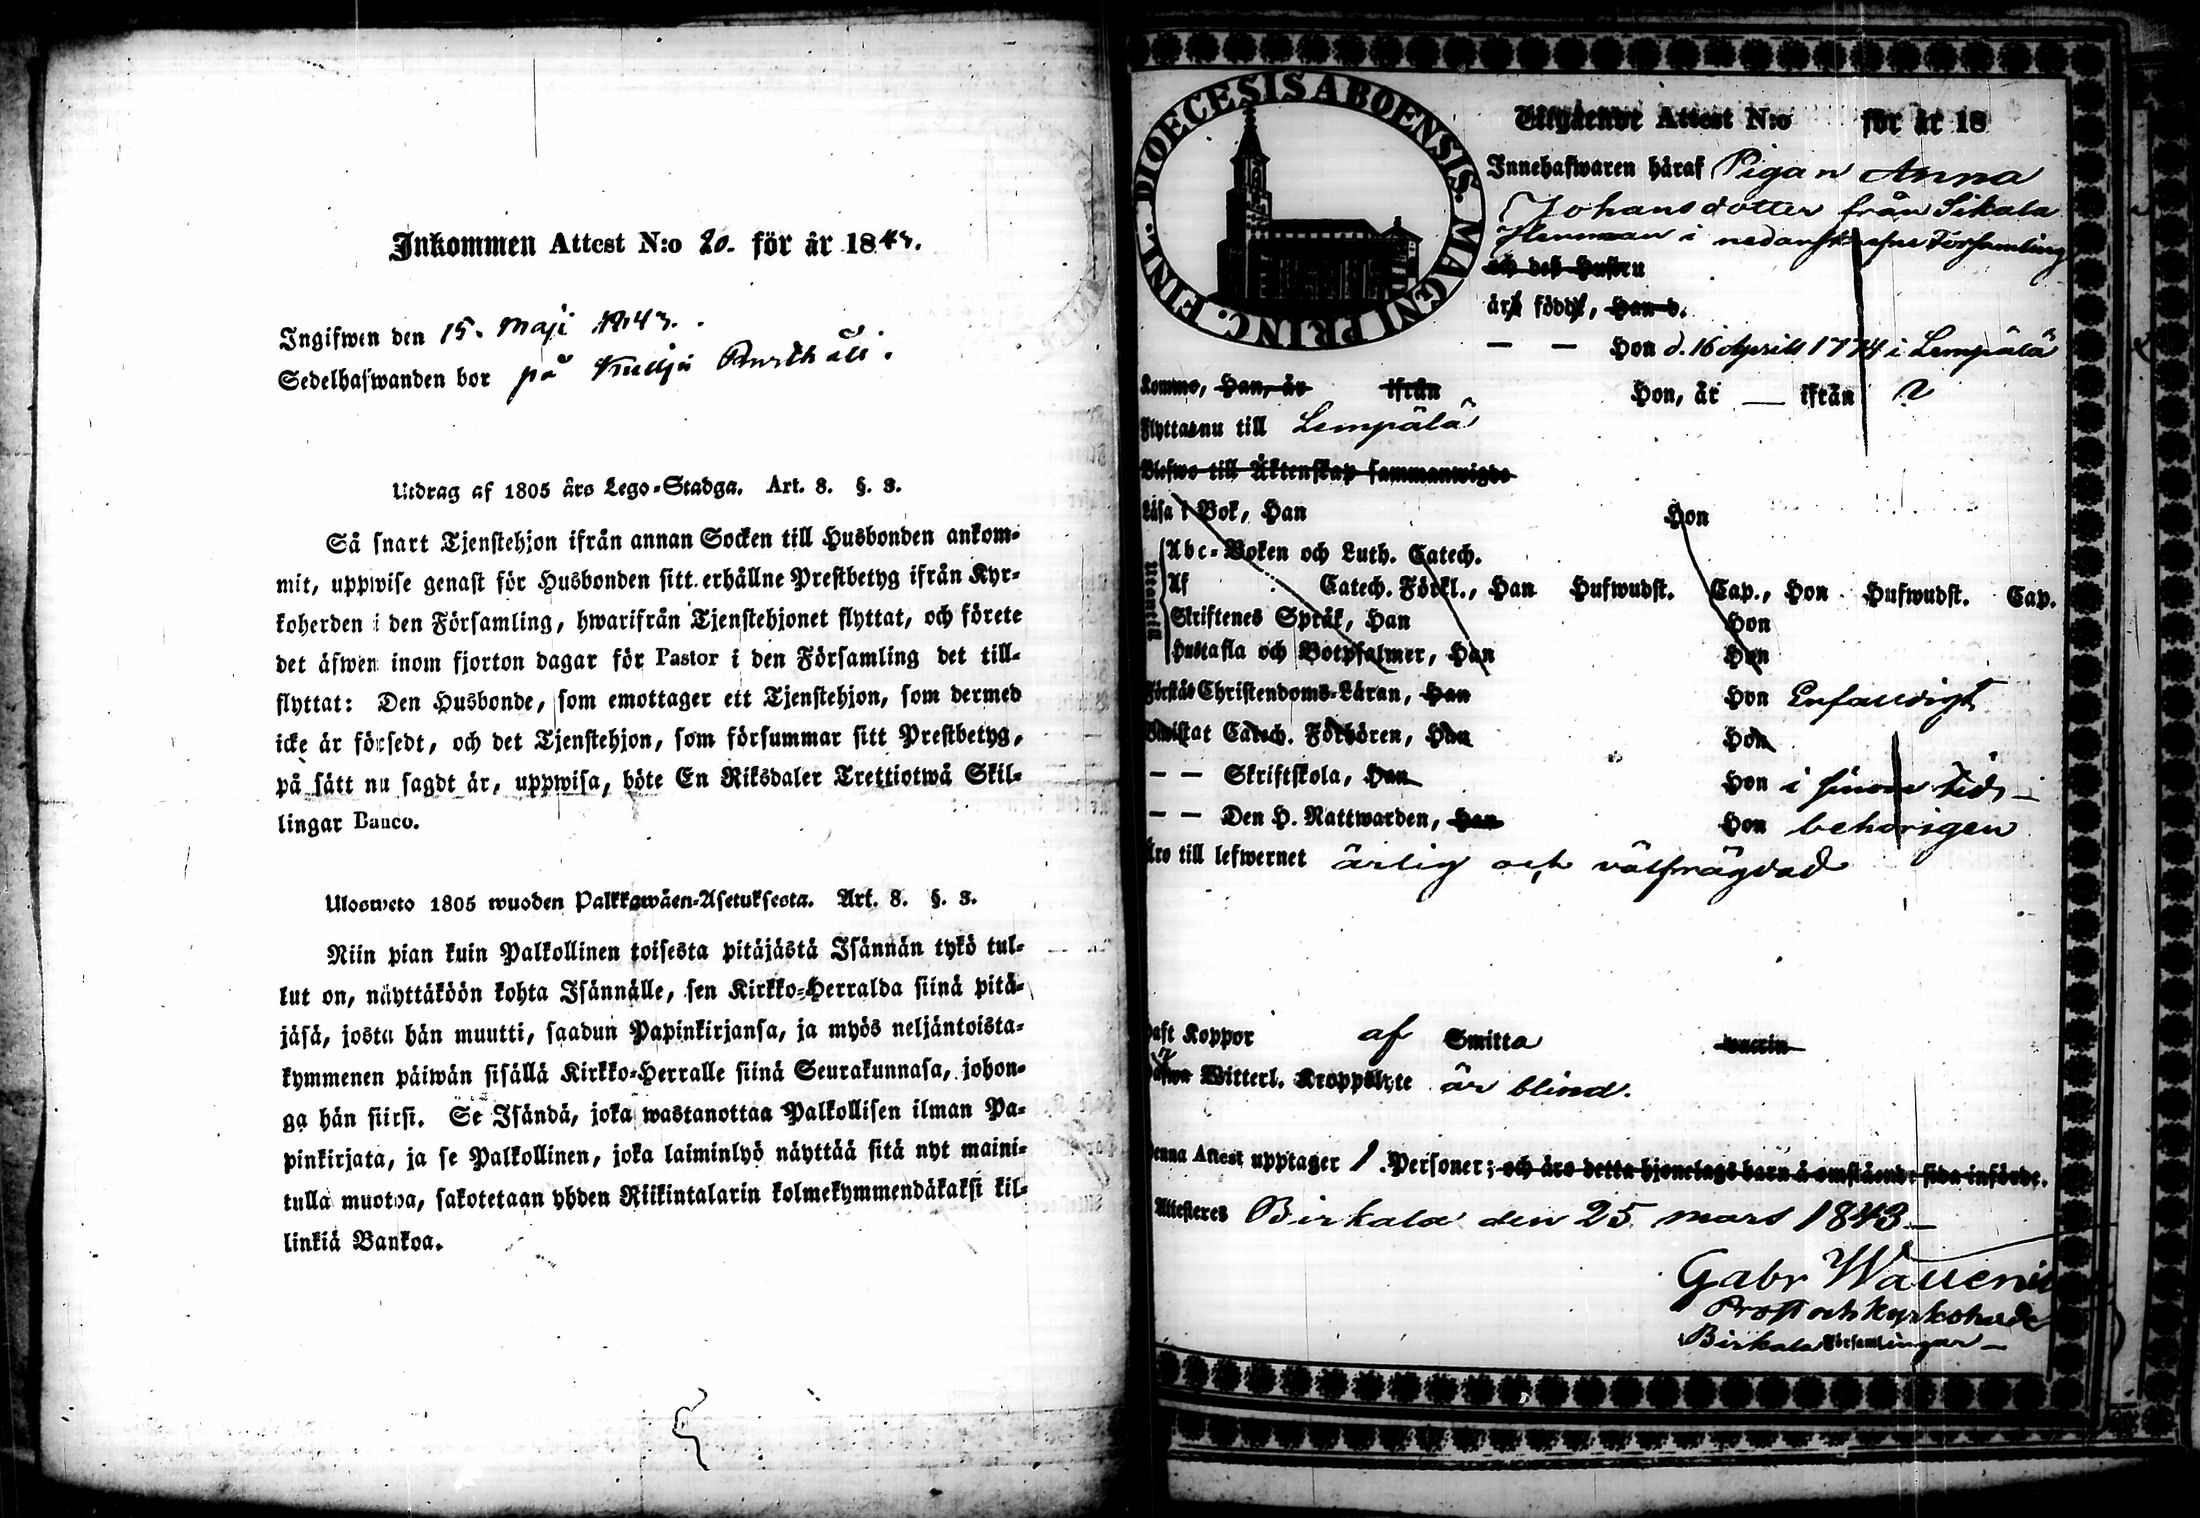 Inkommen Attest N:o 20. för år 1843.
Ingifwen den 15. Maji 1843.
Sedelhafwanden bor på
Utdrag af 1805 års Lego-Stadga. Art. 8. §. 3.
Så snart Tjenstehjon ifrån annan Socken till Husbonden ankom-
mit, uppwise genast för Husbonden sitt erhållne Prestbetyg ifrån Kyr-
koherden i den Församling, hwarifrån Tjenstehjonet flyttat, och förete
det äfwen inom fjorton dagar för Pastor i den Församling det till-
flyttat: Den Husbonde, som emottager ett Tjenstehjon, som dermed
icke är försedt, och det Tjenstehjon, som försummar sitt Prestbetyg,
på sätt nu sagdt är, uppwisa, böte En Riksdaler Trettiotwå Skil-
lingar Banco.
Ulosweto 1805 wuoden Palkkawäen-Asetuksesta. Art. 8. §. 3.
Niin pian kuin Palkollinen toisesta pitäjästä Isännän tykö tul-
lut on, näyttäköön kohta Isännälle, sen Kirkko-Herralda siinä pitä-
jäsä, josta hän muutti, saadun Papinkirjansa, ja myös neljäntoista-
kymmenen päiwän sisällä Kirkko-Herralle siinä Seurakunnasa, johon-
ga hän siirsi. Se Isändä, joka wastanottaa Palkollisen ilman Pa-
pinkirjata, ja se Palkollinen, joka laiminlyö näyttää sitä nyt maini-
tulla muotoa, sakotetaan yhden Riikintalarin kolmekymmendäkaksi kil-
linkiä Bankoa.
DIOECESIS ABOENSIS. MAGNI PRINC. FINL.
Utgående Attest N:o för år 18
Innehafwaren häraf Pigan Anna
Johansdotter från Sikala
Henman i nedanskrefne Församling
och des Hustru
äro födde, Han d.
— — Hon d. 16 Aprill 1774 i Lempälä
Komne, Han, år ifrån Hon, år — ifrån ?
Flytta nu till Lempälä
Blefwo till Äktenskap sammanwigde
Läsa i Bok, Han Hon
Utantill
Abc-Boken och Luth. Catech.
Af Catech. Förkl., Han Hufwudst. Cap., Hon Hufwudst. Cap.
Skriftenes Språk, Han Hon
Hustafla och Botpsalmer, Han Hon
Förstås Christendoms-Läran, Han Hon Enfaldigt
Bewistat Catech. Förhören, Han Hon
— — Skriftskola, Han Hon i sinom tid —
— — Den H. Nattwarden, Han Hon behörigen
Äro till lefwernet ärlig och välfrägdad
Haft Koppor af Smitta waccin
Witterl. Kroppslyte är blind.
Denna Attest upptager 1. Personer; och äro detta hjonelags barn å omstående sida införde.
Attesteres Birkala den 25 mars 1843 —
Gabr Wallenius
Prost och Kyrkoherde
Birkala Församlingar —